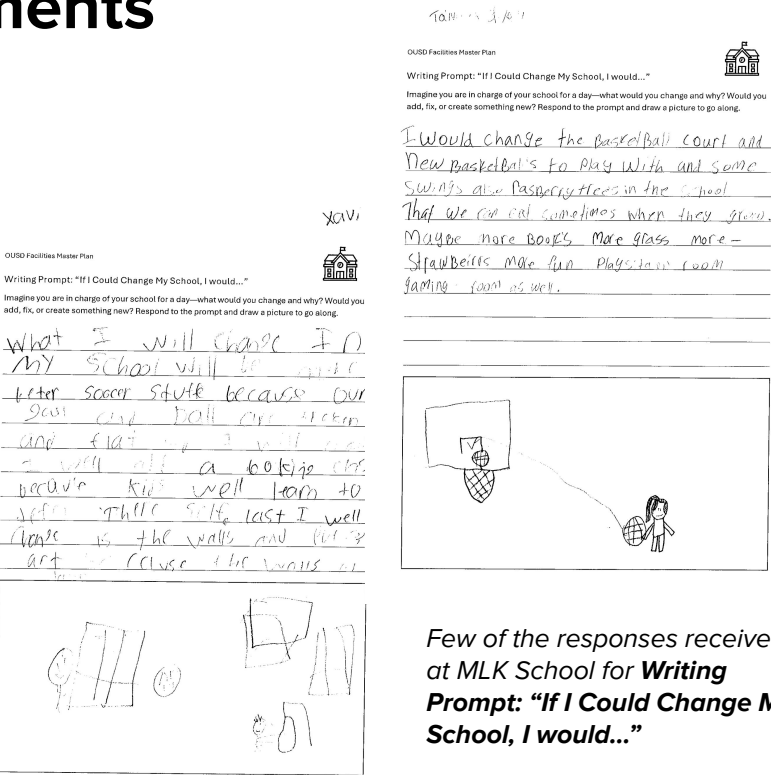 ments
xavi
OUSD Facilities Master Plan
Writing Prompt: "If I Could Change My School, I would..."
Imagine you are in charge of your school for a day—what would you change and why? Would you
add, fix, or create something new? Respond to the prompt and draw a picture to go along.
What I will change In
My School will be
beter soccer stuff because our
goal and ball are
and flat I will
I well a
kids well learn to
self last I well
is the walls and
art the walls
OUSD Facilities Master Plan
Writing Prompt: "If I Could Change My School, I would..."
Imagine you are in charge of your school for a day—what would you change and why? Would you
add, fix, or create something new? Respond to the prompt and draw a picture to go along.
I would change the BasketBall court and
New BasketBal's to Play with and some
Swings also Rasperry trees in the school
That we can eat sometimes when they grow.
Maybe more Book's More grass more-
More fun Playstation room
gaming room as well.
Few of the responses receive
at MLK School for Writing
Prompt: "If I Could Change M
School, I would..."